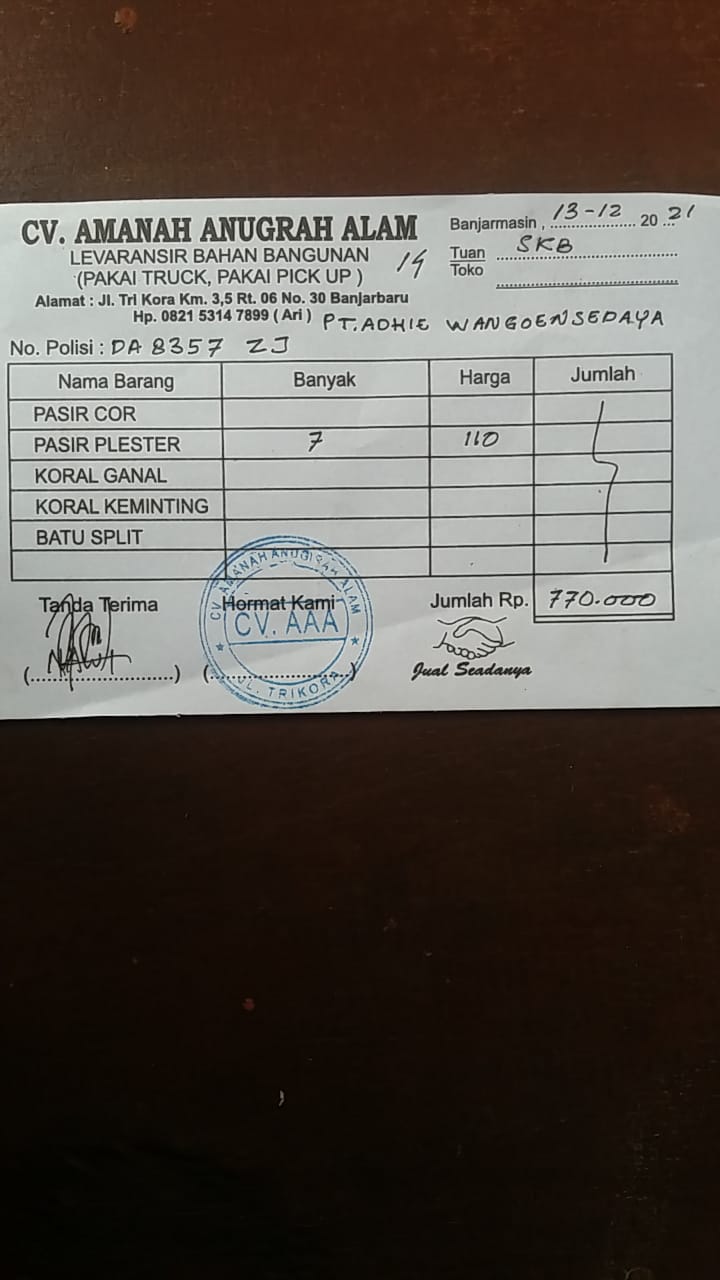 CV. AMANAH ANUGRAH ALAM
LEVARANSIR BAHAN BANGUNAN
(PAKAI TRUCK, PAKAI PICK UP )
Alamat : Jl. Tri Kora Km. 3,5 Rt. 06 No. 30 Banjarbaru
Hp. 0821 5314 7899 ( Ari )
Banjarmasin , 13-12 20 21
Tuan SKB
Toko
PT. ADHIE WANGOENSEDAYA
No. Polisi : DA 8357 ZJ
Nama Barang Banyak Harga Jumlah
PASIR COR
PASIR PLESTER 7 110
KORAL GANAL
KORAL KEMINTING
BATU SPLIT
Tanda Terima Hormat Kami Jumlah Rp. 770.000
CV. AMANAH ANUGRAH ALAM
CV. AAA
JL. TRIKORA
Jual Seadanya